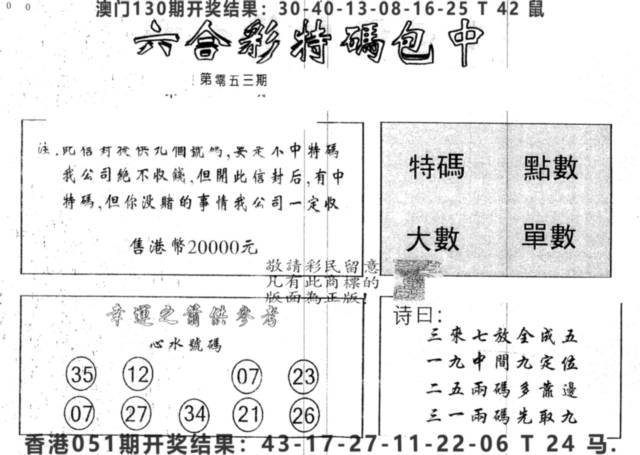 澳门130期开奖结果：30-40-13-08-16-25 T 42 鼠
六合彩特碼包中
第零五三期
注.此信封提供九個號碼,要是不中特碼
我公司絶不收錢,但開此信封后,有中
特碼,但你没賭的事情我公司一定收
售港幣20000元
特碼 點數
大數 單數
敬請彩民留意
凡有此商標的
版面為正版!
幸運之籌供參考
心水號碼
35 12 07 23
07 27 34 21 26
诗曰:
三來七放全成五
一九中間九定位
二五兩碼多靠邊
三一兩碼先取九
香港051期开奖结果：43-17-27-11-22-06 T 24 马.